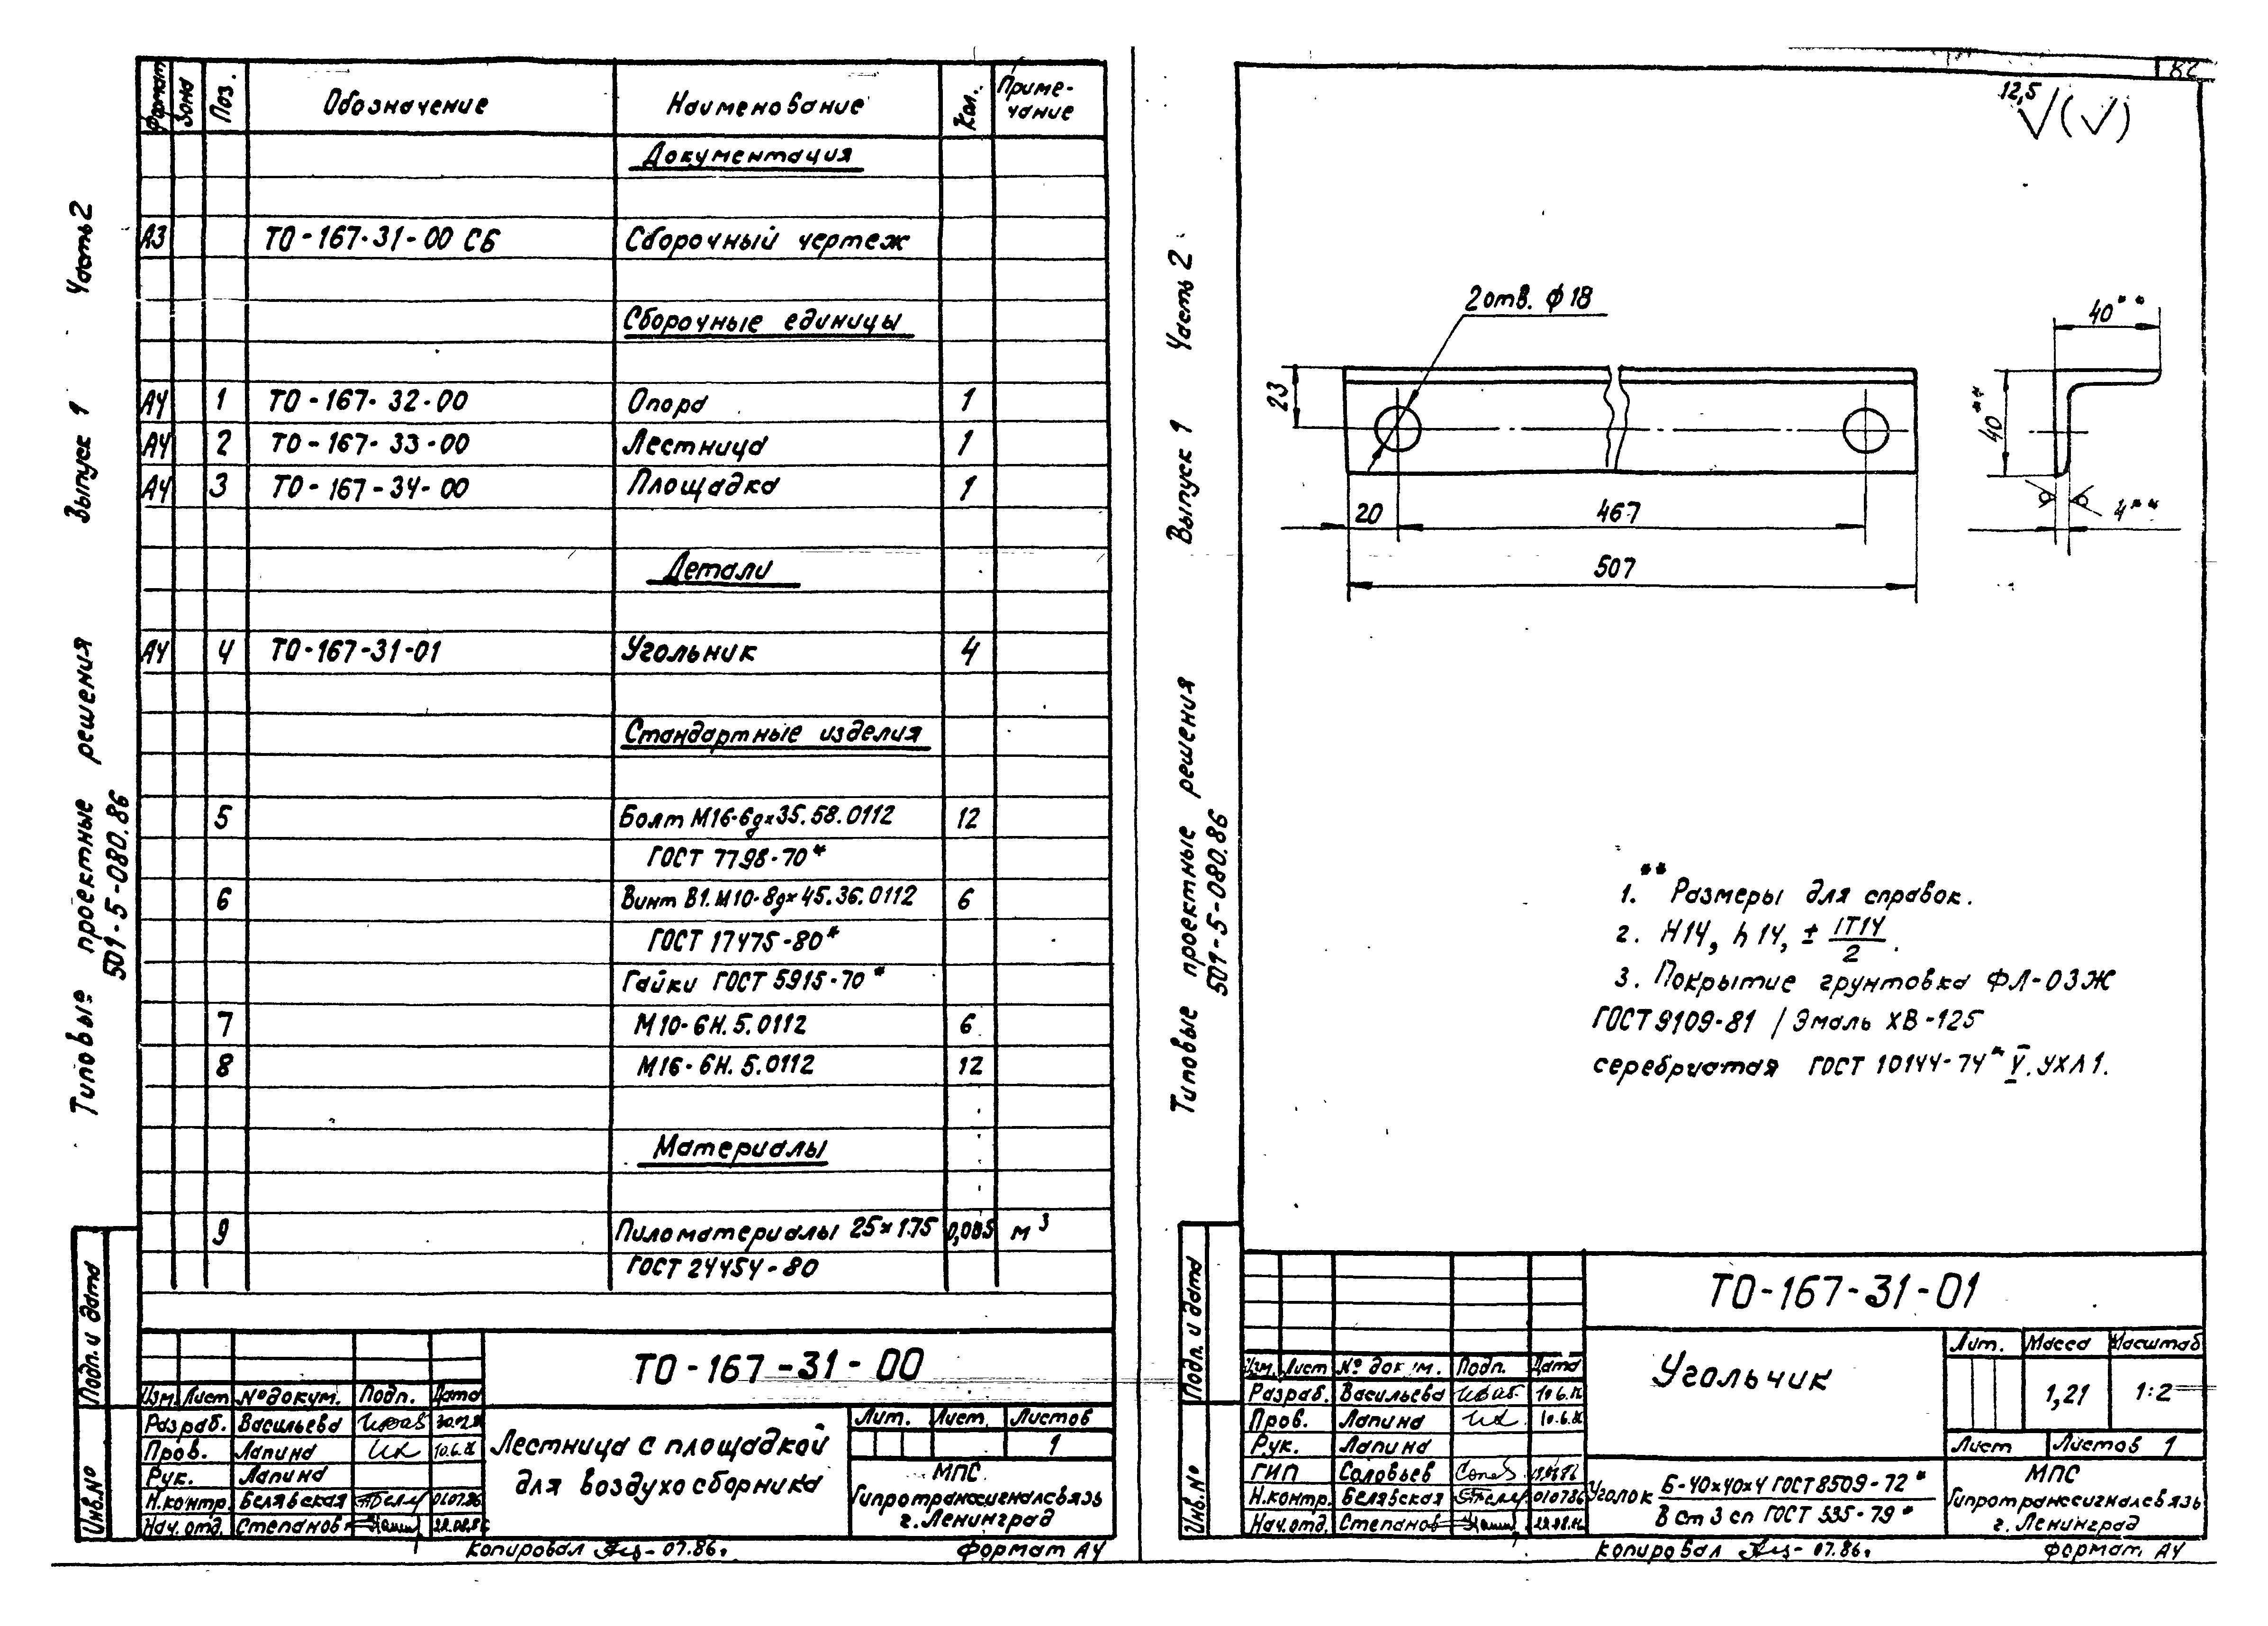 Формат Зона Поз. Обозначение Наименование Кол. Приме-
чание
Документация
А3 ТО-167-31-00 СБ Сборочный чертеж
Сборочные единицы
А4 1 ТО-167-32-00 Опора 1
А4 2 ТО-167-33-00 Лестница 1
А4 3 ТО-167-34-00 Площадка 1
Детали
А4 4 ТО-167-31-01 Угольник 4
Стандартные изделия
5 Болт М16-6gх35.58.0112 12
ГОСТ 7798-70*
6 Винт В1.М10-8gх45.36.0112 6
ГОСТ 17475-80*
Гайки ГОСТ 5915-70*
7 М10-6Н.5.0112 6
8 М16-6Н.5.0112 12
Материалы
9 Пиломатериалы 25х175 м³
ГОСТ 24454-80
Типовые проектные решения Выпуск 1 Часть 2
501-5-080.86
Подп. и дата
Инв.№
ТО-167-31-00
Изм. Лист № докум. Подп. Дата
Разраб. Васильева
Пров. Лапина 10.6.86
Рук. Лапина
Н.контр. Белявская 010786
Нач.отд. Степанов
Лестница с площадкой
для воздухосборника
Лит. Лист. Листов
1
МПС
Гипротранссигналсвязь
г.Ленинград
Копировал 07.86г. Формат А4
82
12,5 (√)
Типовые проектные решения Выпуск 1 Часть 2
501-5-080.86
2отв. ф18
23
20 467
507
40**
40**
4**
1. ** Размеры для справок.
2. Н14, h14, ± IT14/2.
3. Покрытие грунтовка ФЛ-03Ж
ГОСТ 9109-81 / Эмаль ХВ-125
серебристая ГОСТ 10144-74* V. УХЛ1.
Подп. и дата
Инв.№
ТО-167-31-01
Изм. Лист № докум. Подп. Дата
Разраб. Васильева 10.6.86
Пров. Лапина 10.6.86
Рук. Лапина
ГИП Соловьев
Н.контр. Белявская 010786
Нач.отд. Степанов
Угольчик
Лит. Масса Масштаб
1,21 1:2
Лист Листов 1
Уголок Б-40х40х4 ГОСТ 8509-72*
В ст 3 сп ГОСТ 535-79*
МПС
Гипротранссигналсвязь
г. Ленинград
Копировал 07.86г. Формат А4